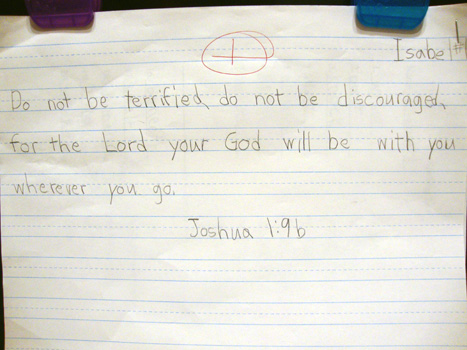 +
Isabel #1
Do not be terrified, do not be discouraged,
for the Lord your God will be with you
wherever you go.
Joshua 1:9b